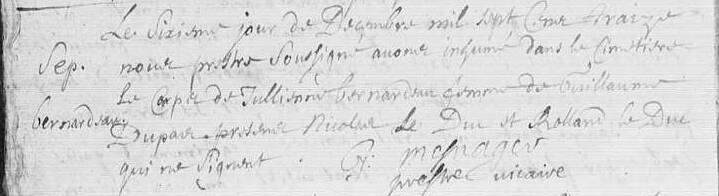 Le Sixieme jour de Decembre mil sept Cens traize
Sep. nous prestre Soussigné avons inhumé dans le Cimetiere
Le Corps de Jullienne bernardeau femme de Guillaume
bernardeau Dupas presens Nicolas Le Duc et Rolland le Duc
qui ne Signent
mesnager
prestre vicaire